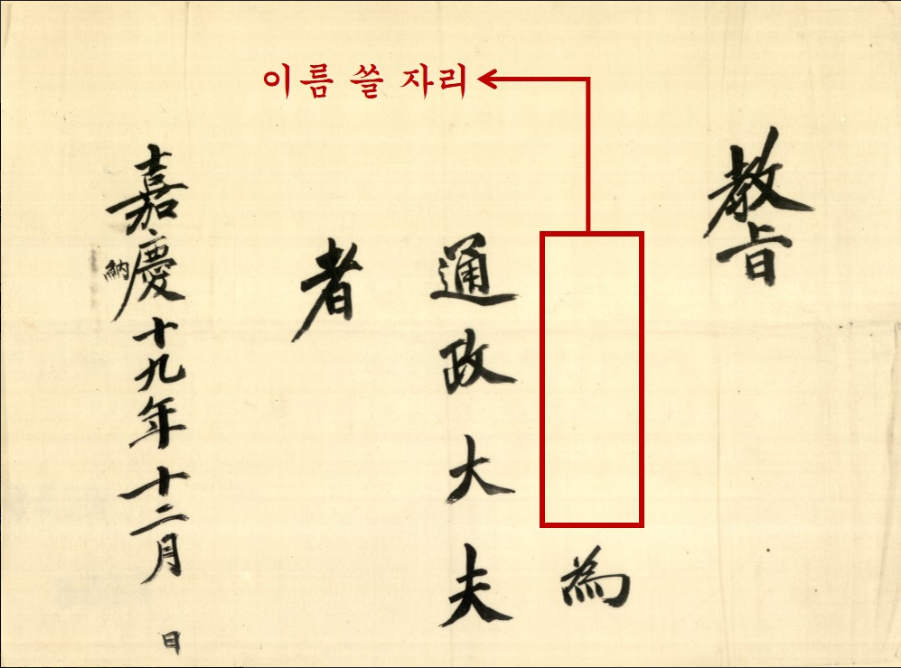 이름 쓸 자리
教旨
為
通政大夫
者
嘉慶十九年十二月 日
納